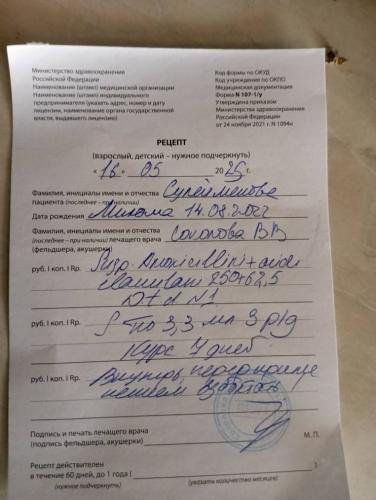 Министерство здравоохранения
Российской Федерации
Наименование (штамп) медицинской организации
Наименование (штамп) индивидуального
предпринимателя (указать адрес, номер и дату
лицензии, наименование органа государственной
власти, выдавшего лицензию)
Код формы по ОКУД
Код учреждения по ОКПО
Медицинская документация
Форма N 107-1/у
Утверждена приказом
Министерства здравоохранения
Российской Федерации
от 24 ноября 2021 г. N 1094н
РЕЦЕПТ
(взрослый, детский – нужное подчеркнуть)
« 16 » 05 20 25 г.
Фамилия, инициалы имени и отчества Сулейменова
пациента (последнее – при наличии)
Дата рождения 14.08.2022
Фамилия, инициалы имени и отчества Соколова ВВ
(последнее – при наличии) лечащего врача
(фельдшера, акушерки)
руб. I коп. I Rp. Susp. Amoxicillini + acidi
clavulanici 250+62,5
D t d N 1
руб. I коп. I Rp. S по 3,3 мл 3 р/д
Курс 7 дней
руб. I коп. I Rp. Внутрь, перед приме
нением взболтать
Подпись и печать лечащего врача
(подпись фельдшера, акушерки)
М. П.
Рецепт действителен
в течение 60 дней, до 1 года ( )
(нужное подчеркнуть) (указать количество месяцев)